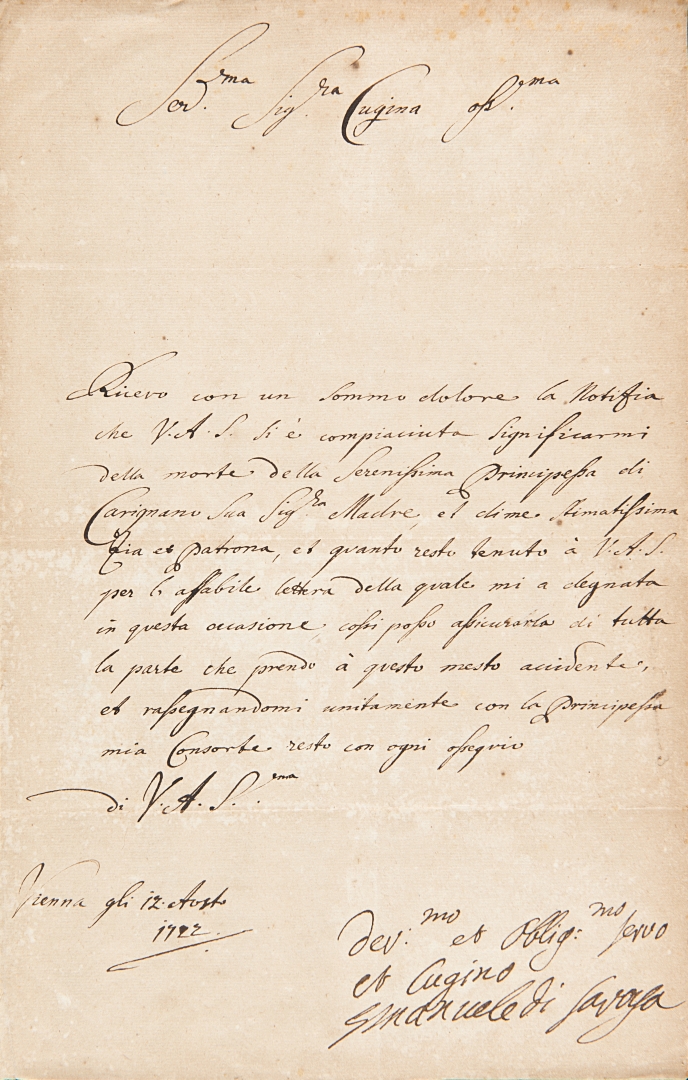 Ser.ma Sig.ra Cugina oss.ma
Ricevo con un sommo dolore la Notitia
che V. A. S. si è compiaciuta significarmi
della morte della Serenissima Principessa di
Carignano Sua Sig.ra Madre, et dime stimatissima
Zia et Patrona, et quanto resto tenuto à V. A. S.
per l'affabile lettera della quale mi a degnata
in questa occasione cossi posso assicurarla di tutta
la parte che prendo à questo mesto accidente,
et rassegnandomi unitamente con la Principessa
mia Consorte resto con ogni ossequio
di V. A. S.ma
Vienna gli 12. Aosto
1722.
Dev:mo et Oblig:mo servo
et Cugino
Emanuele di Savoya